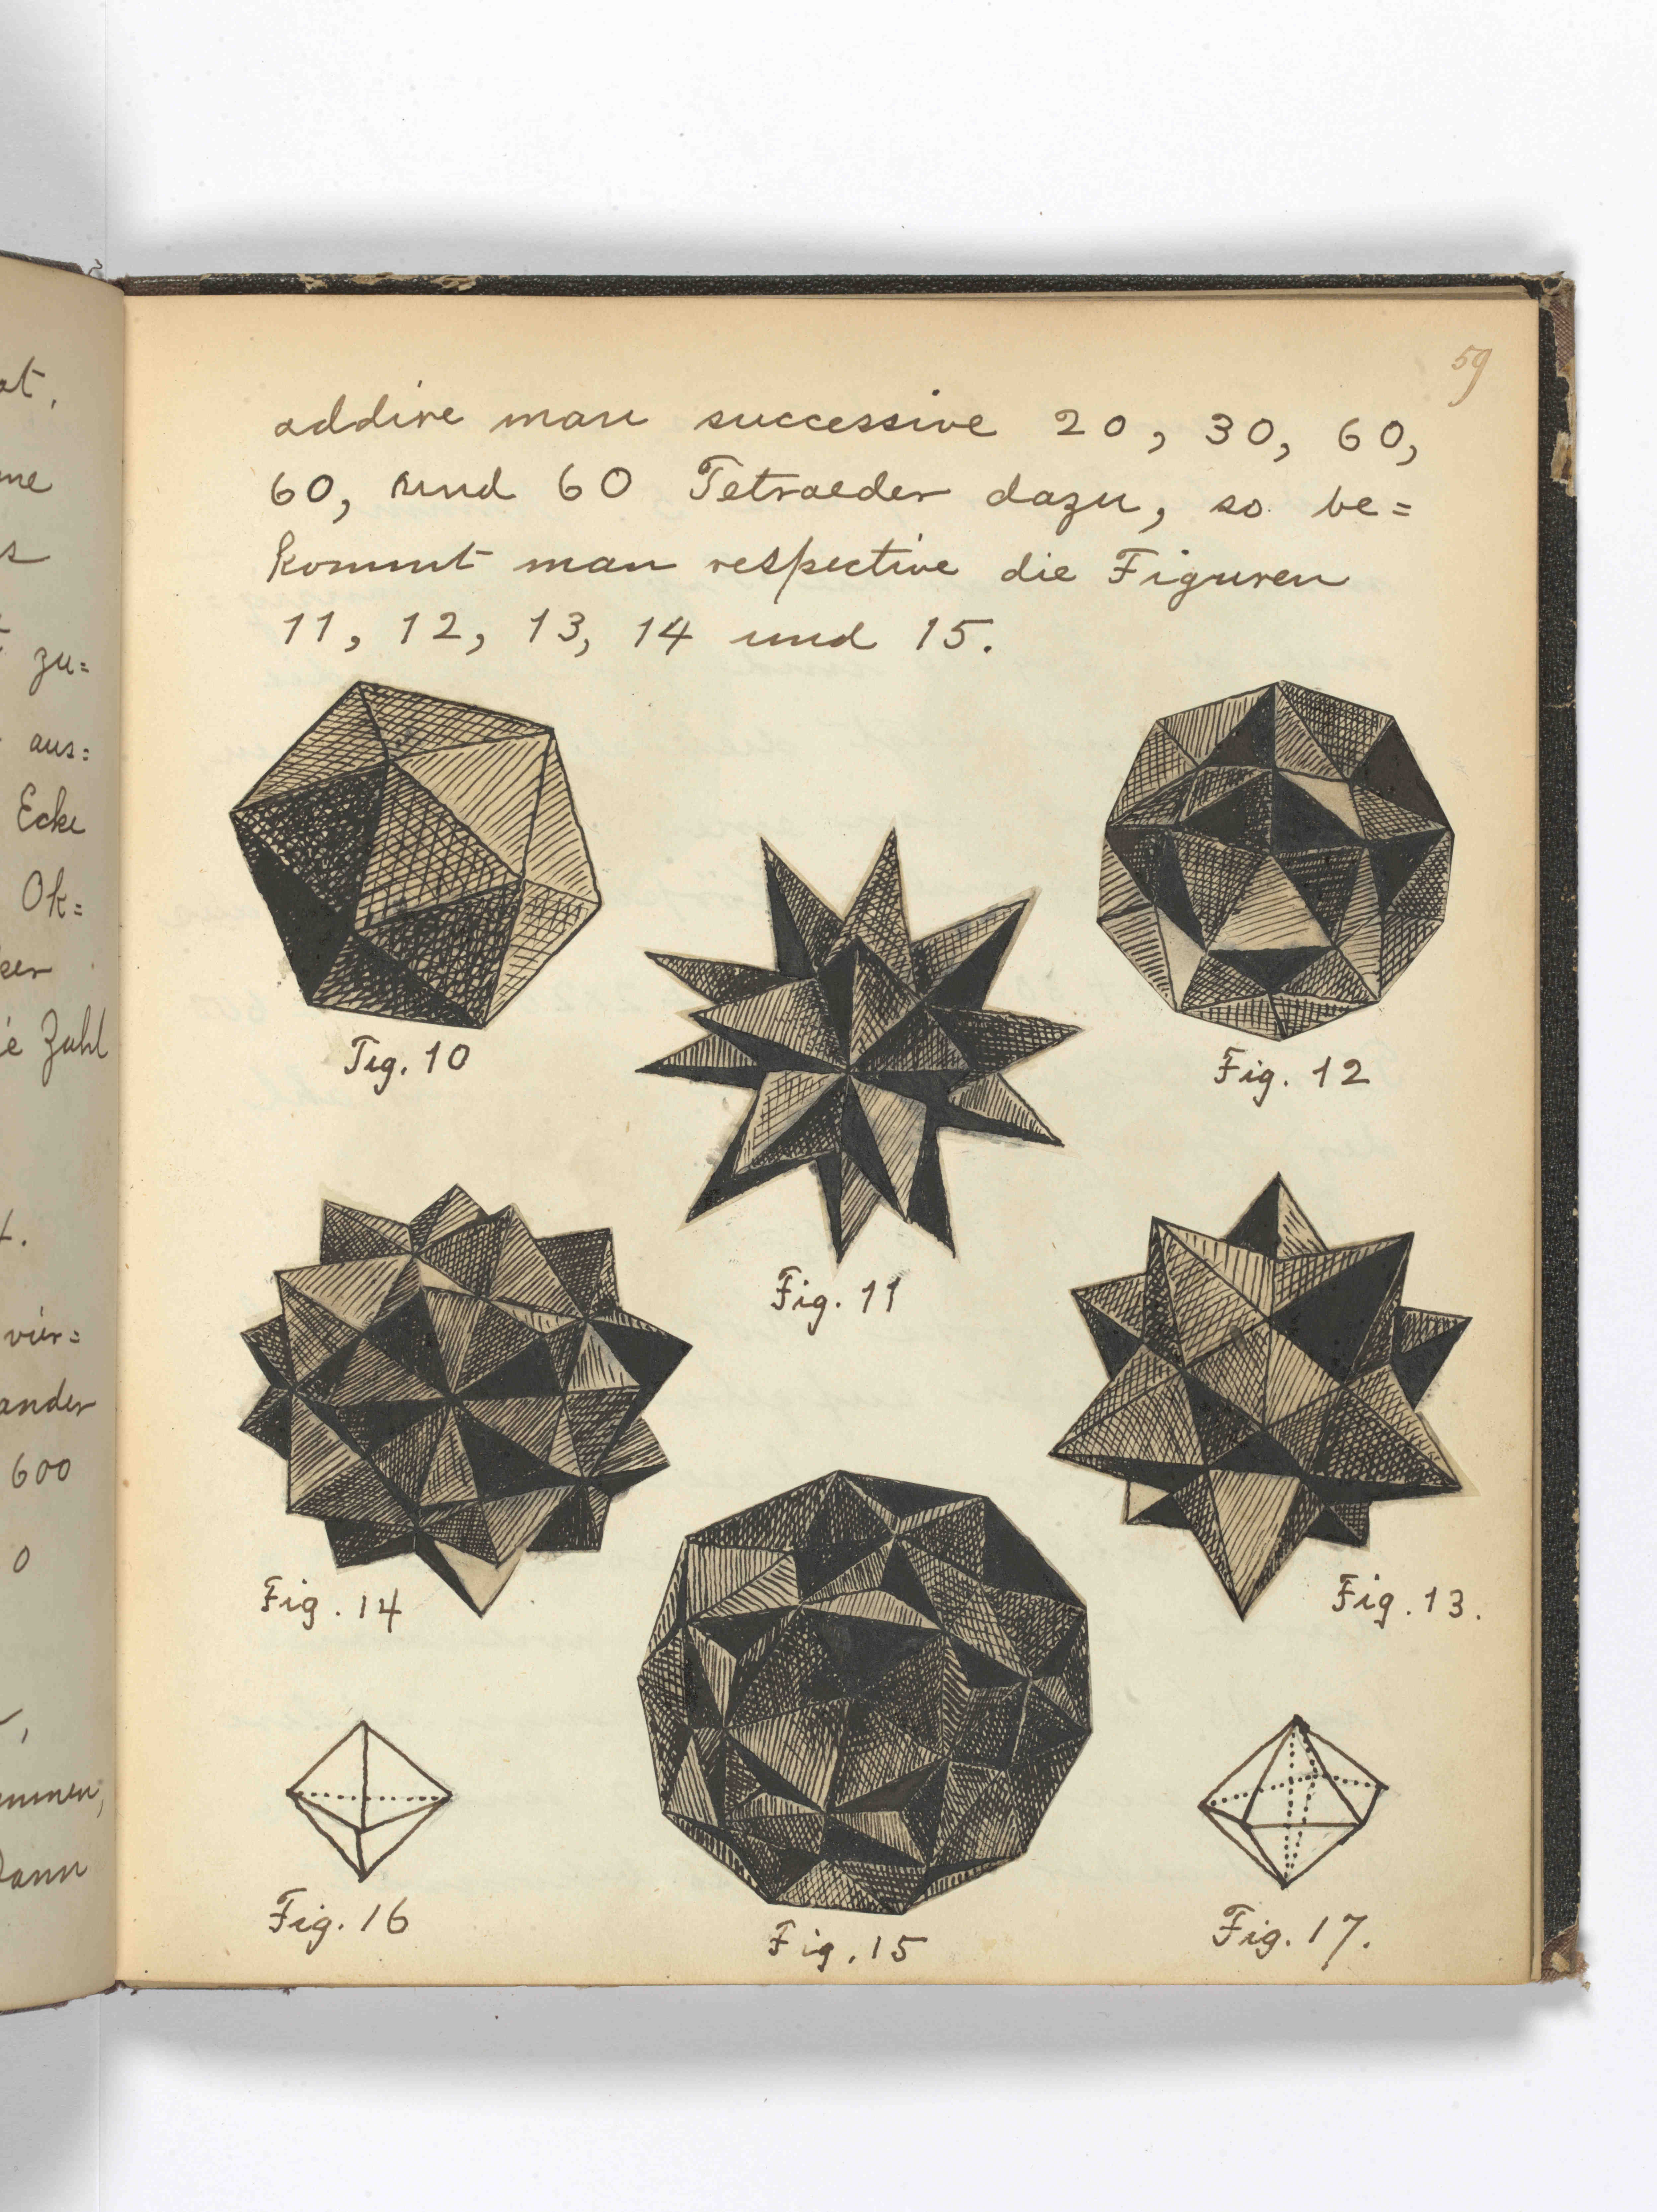 at,
zu=
aus=
Ecke
Ok=
ie Zahl
vier=
ander
600
0
59
addire man successive 20, 30, 60,
60, und 60 Tetraeder dazu, so be=
kommt man respective die Figuren
11, 12, 13, 14 und 15.
Fig. 10
Fig. 12
Fig. 11
Fig. 14
Fig. 13.
Fig. 16
Fig. 15
Fig. 17.